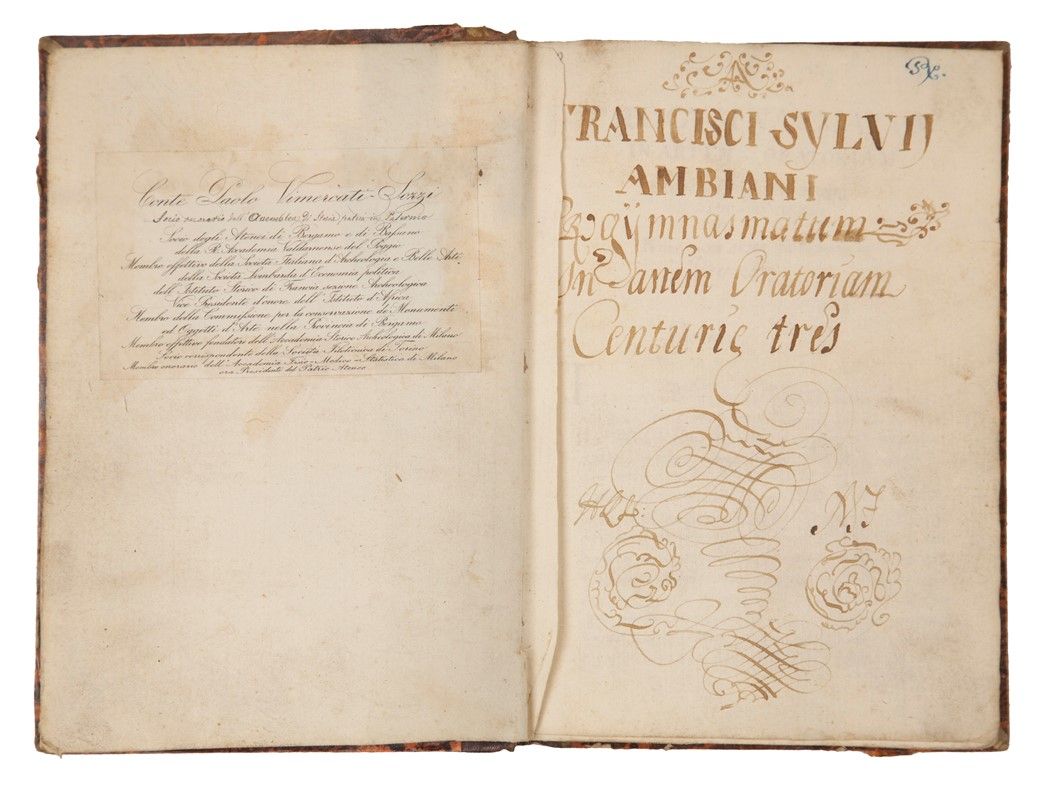 Conte Paolo Vimercati-Sozzi
Socio degli Atenei di Bergamo e di Bassano
della R. Accademia Valdarnense del Poggio
Membro effettivo della Società Italiana d'Archeologia e Belle Arti
della Società Lombarda d'Economia politica
dell'Istituto Storico di Francia sezione Archeologica
Vice Presidente d'onore dell'Istituto d'Africa
Membro della Commissione per la conservazione de Monumenti
ed Oggetti d'Arte nella Provincia di Bergamo
Membro effettivo fondatore dell'Accademia Storico Archeologica di Milano
Socio corrispondente della Società Filotecnica di Torino
Membro onorario dell'Accademia Fisio-Medico-Statistica di Milano
ora Presidente del Patrio Ateneo
A
FRANCISCI SYLVIJ
AMBIANI
Progÿmnasmatum
In Oratoriam
Centurię tres